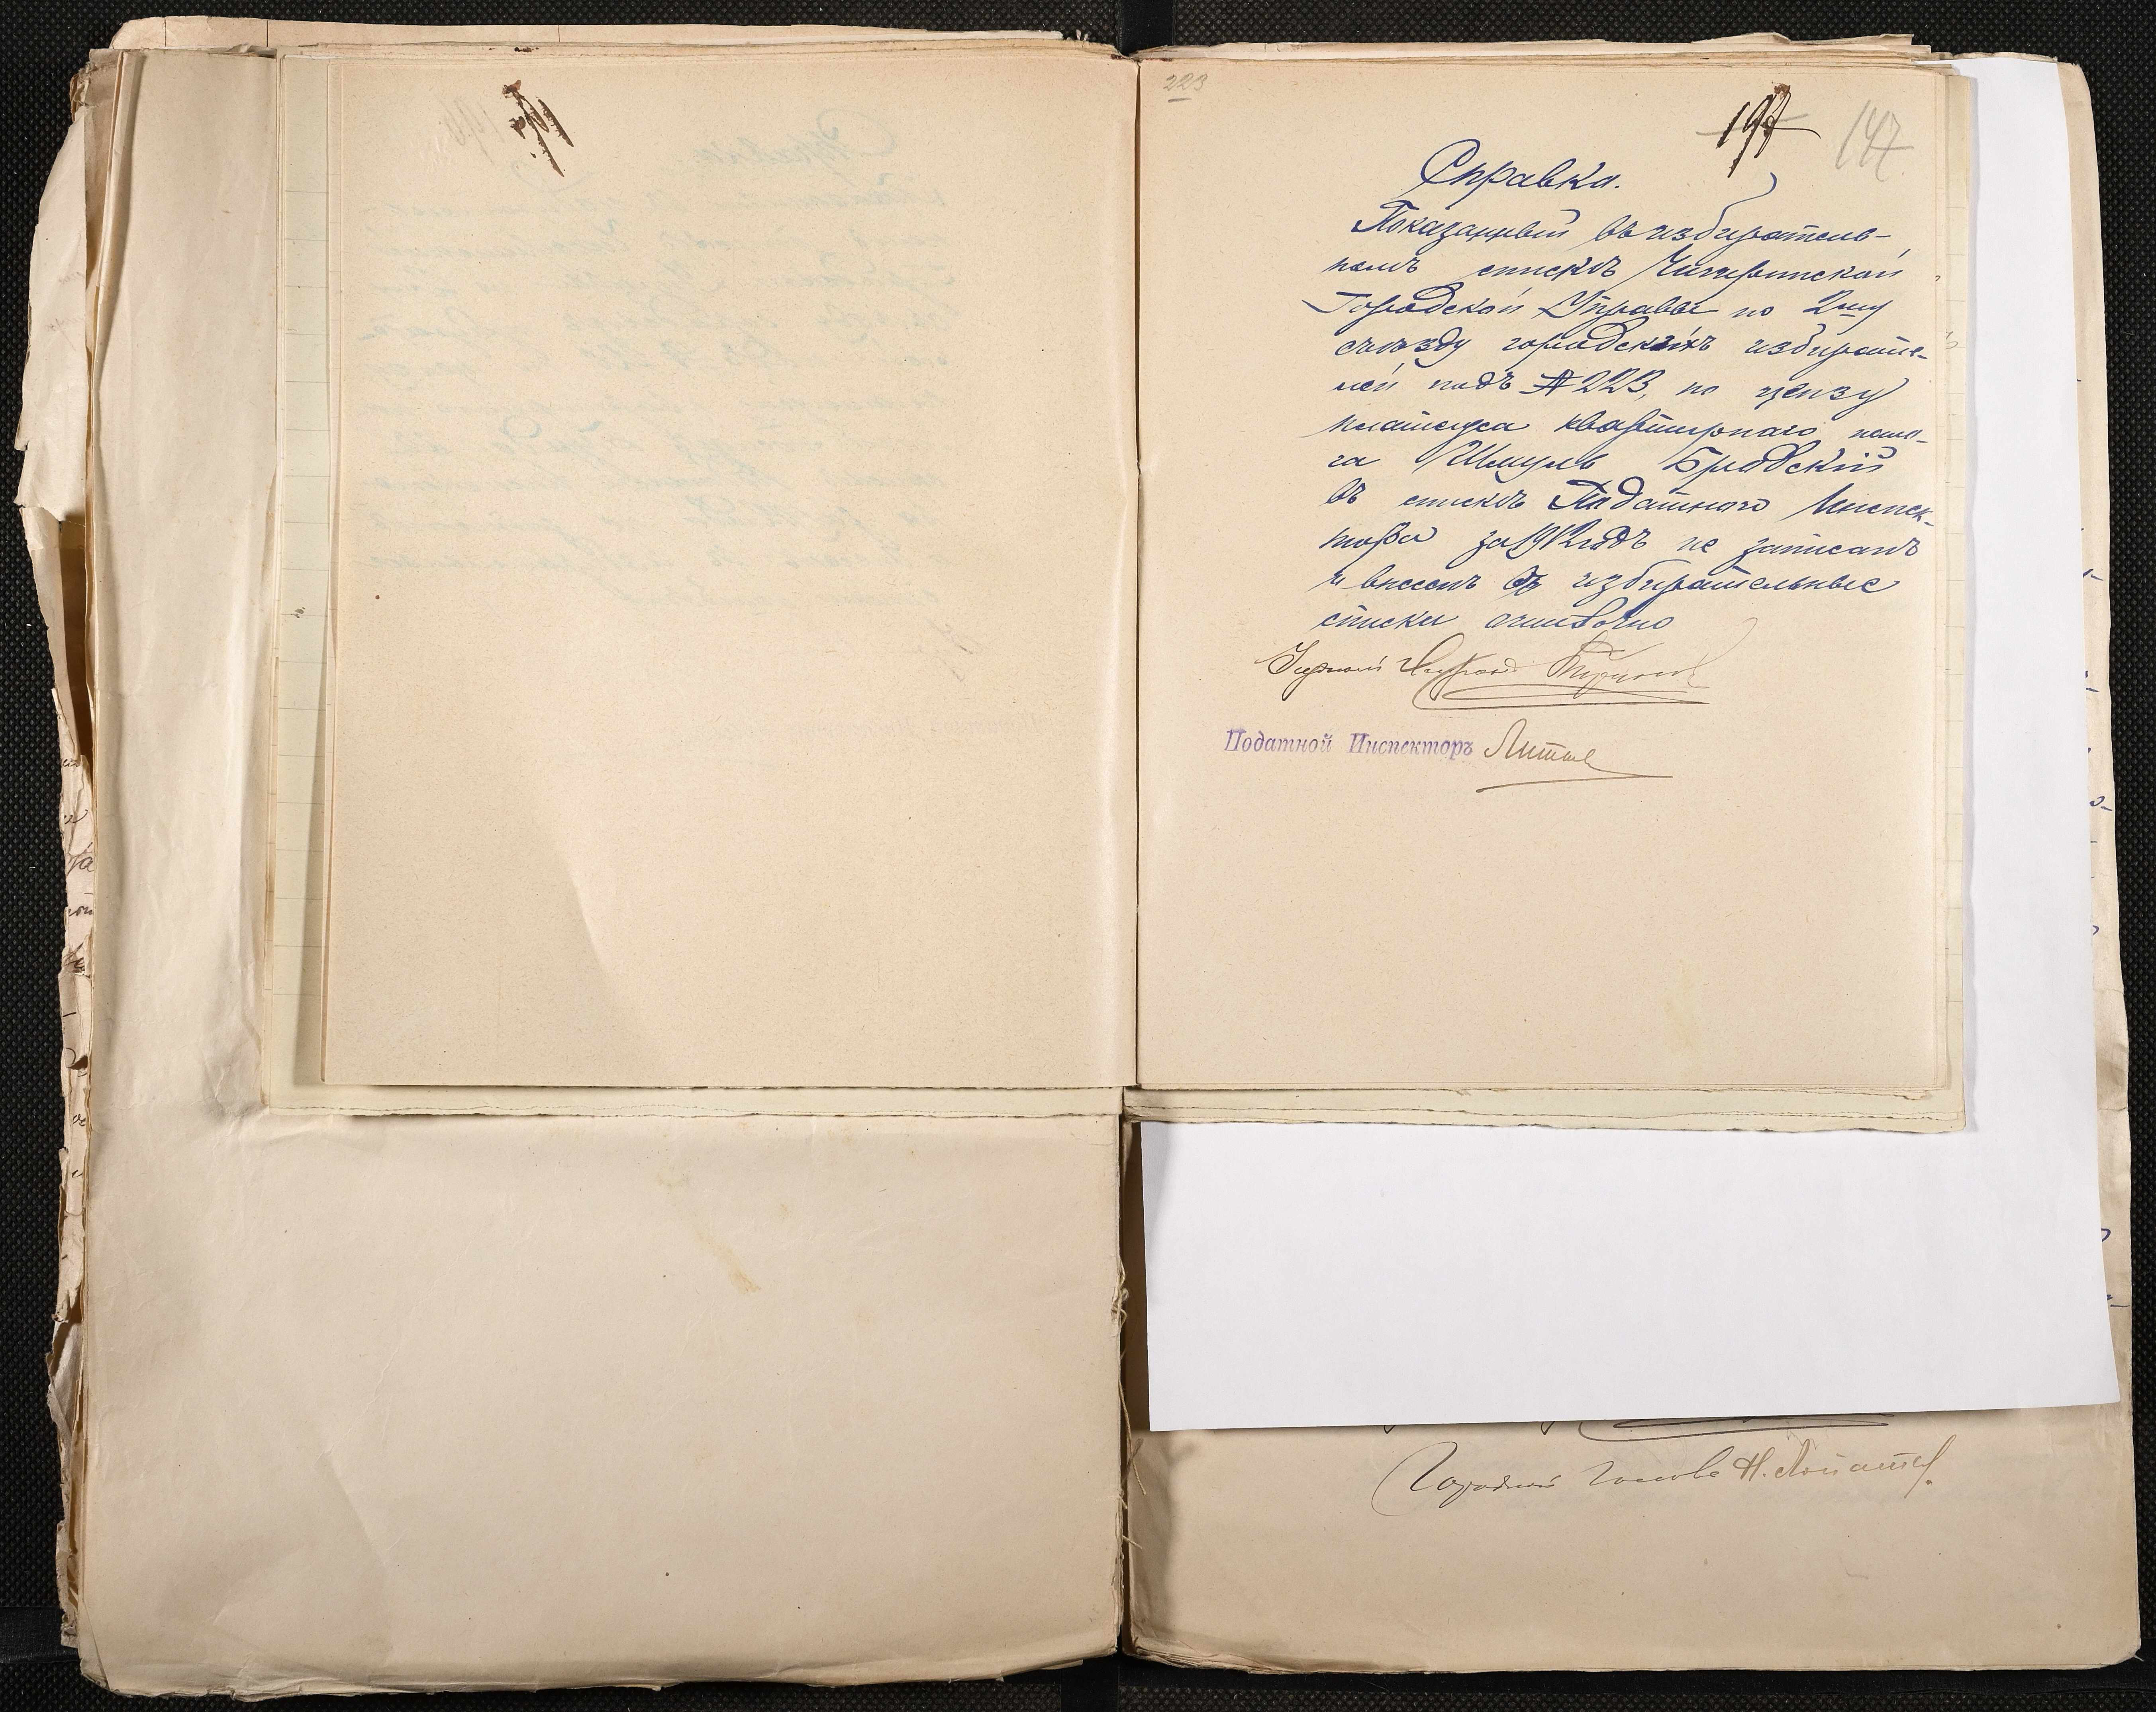 223
197 147
Справка.
Показанный въ избиратель-
номъ спискѣ Чигиринской
Городской Управы по 2му
съѣзду городскихъ избирате-
лей подъ № 223, по цензу
плательщика квартирнаго нало-
га Шмуль Бродскій
въ спискѣ Податного Инспек-
тора за 1912 годъ не записанъ
и внесенъ въ избирательные
списки ошибочно
Уѣздный
Податной Инспекторъ
Городской Голова Н.